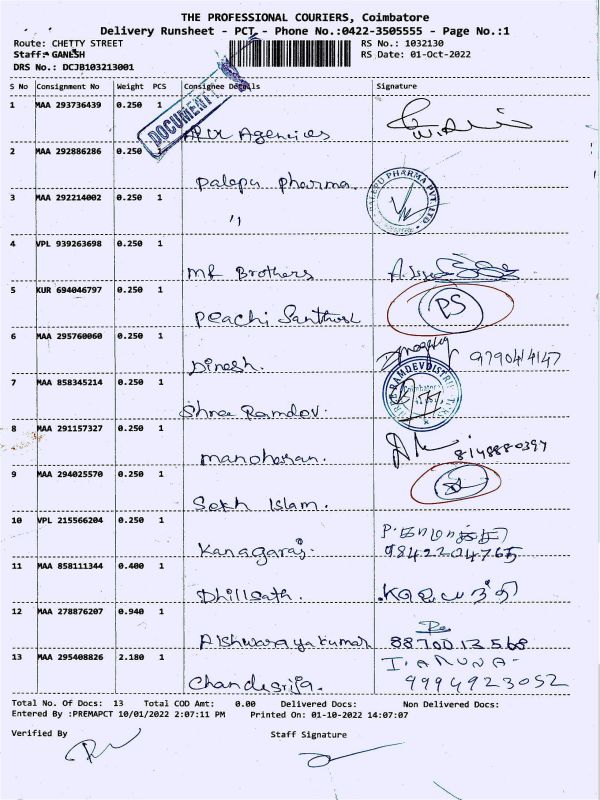 THE PROFESSIONAL COURIERS, Coimbatore
Delivery Runsheet - PCT - Phone No.:0422-3505555 - Page No.:1
Route: CHETTY STREET RS No.: 1032130
Staff: GANESH RS Date: 01-Oct-2022
DRS No.: DCJB103213001
S No Consignment No Weight PCS Consignee Details Signature
DOCUMENT
1 MAA 293736439 0.250 1
Agencies
2 MAA 292886286 0.250 1
Palepu Pharma.
3 MAA 292214002 0.250 1
PALEPU PHARMA PVT LTD
"
4 VPL 939263698 0.250 1
MR Brothers
5 KUR 694046797 0.250 1
Peachi Santhosh PS
6 MAA 295760060 0.250 1
Dinesh. 9790414147
7 MAA 858345214 0.250 1
Shree Ramdev.
8 MAA 291157327 0.250 1
manoharan. 8148880397
9 MAA 294025570 0.250 1
Sekh Islam.
10 VPL 215566204 0.250 1
Kanagaraj. 9842204765
11 MAA 858111344 0.400 1
Dhillsath.
12 MAA 278876207 0.940 1
Aishwarayakumar 8870013568
13 MAA 295408826 2.180 1 I. ARUNA-
Chandesrija. 9994923052
Total No. Of Docs: 13 Total COD Amt: 0.00 Delivered Docs: Non Delivered Docs:
Entered By :PREMAPCT 10/01/2022 2:07:11 PM Printed On: 01-10-2022 14:07:07
Verified By Staff Signature